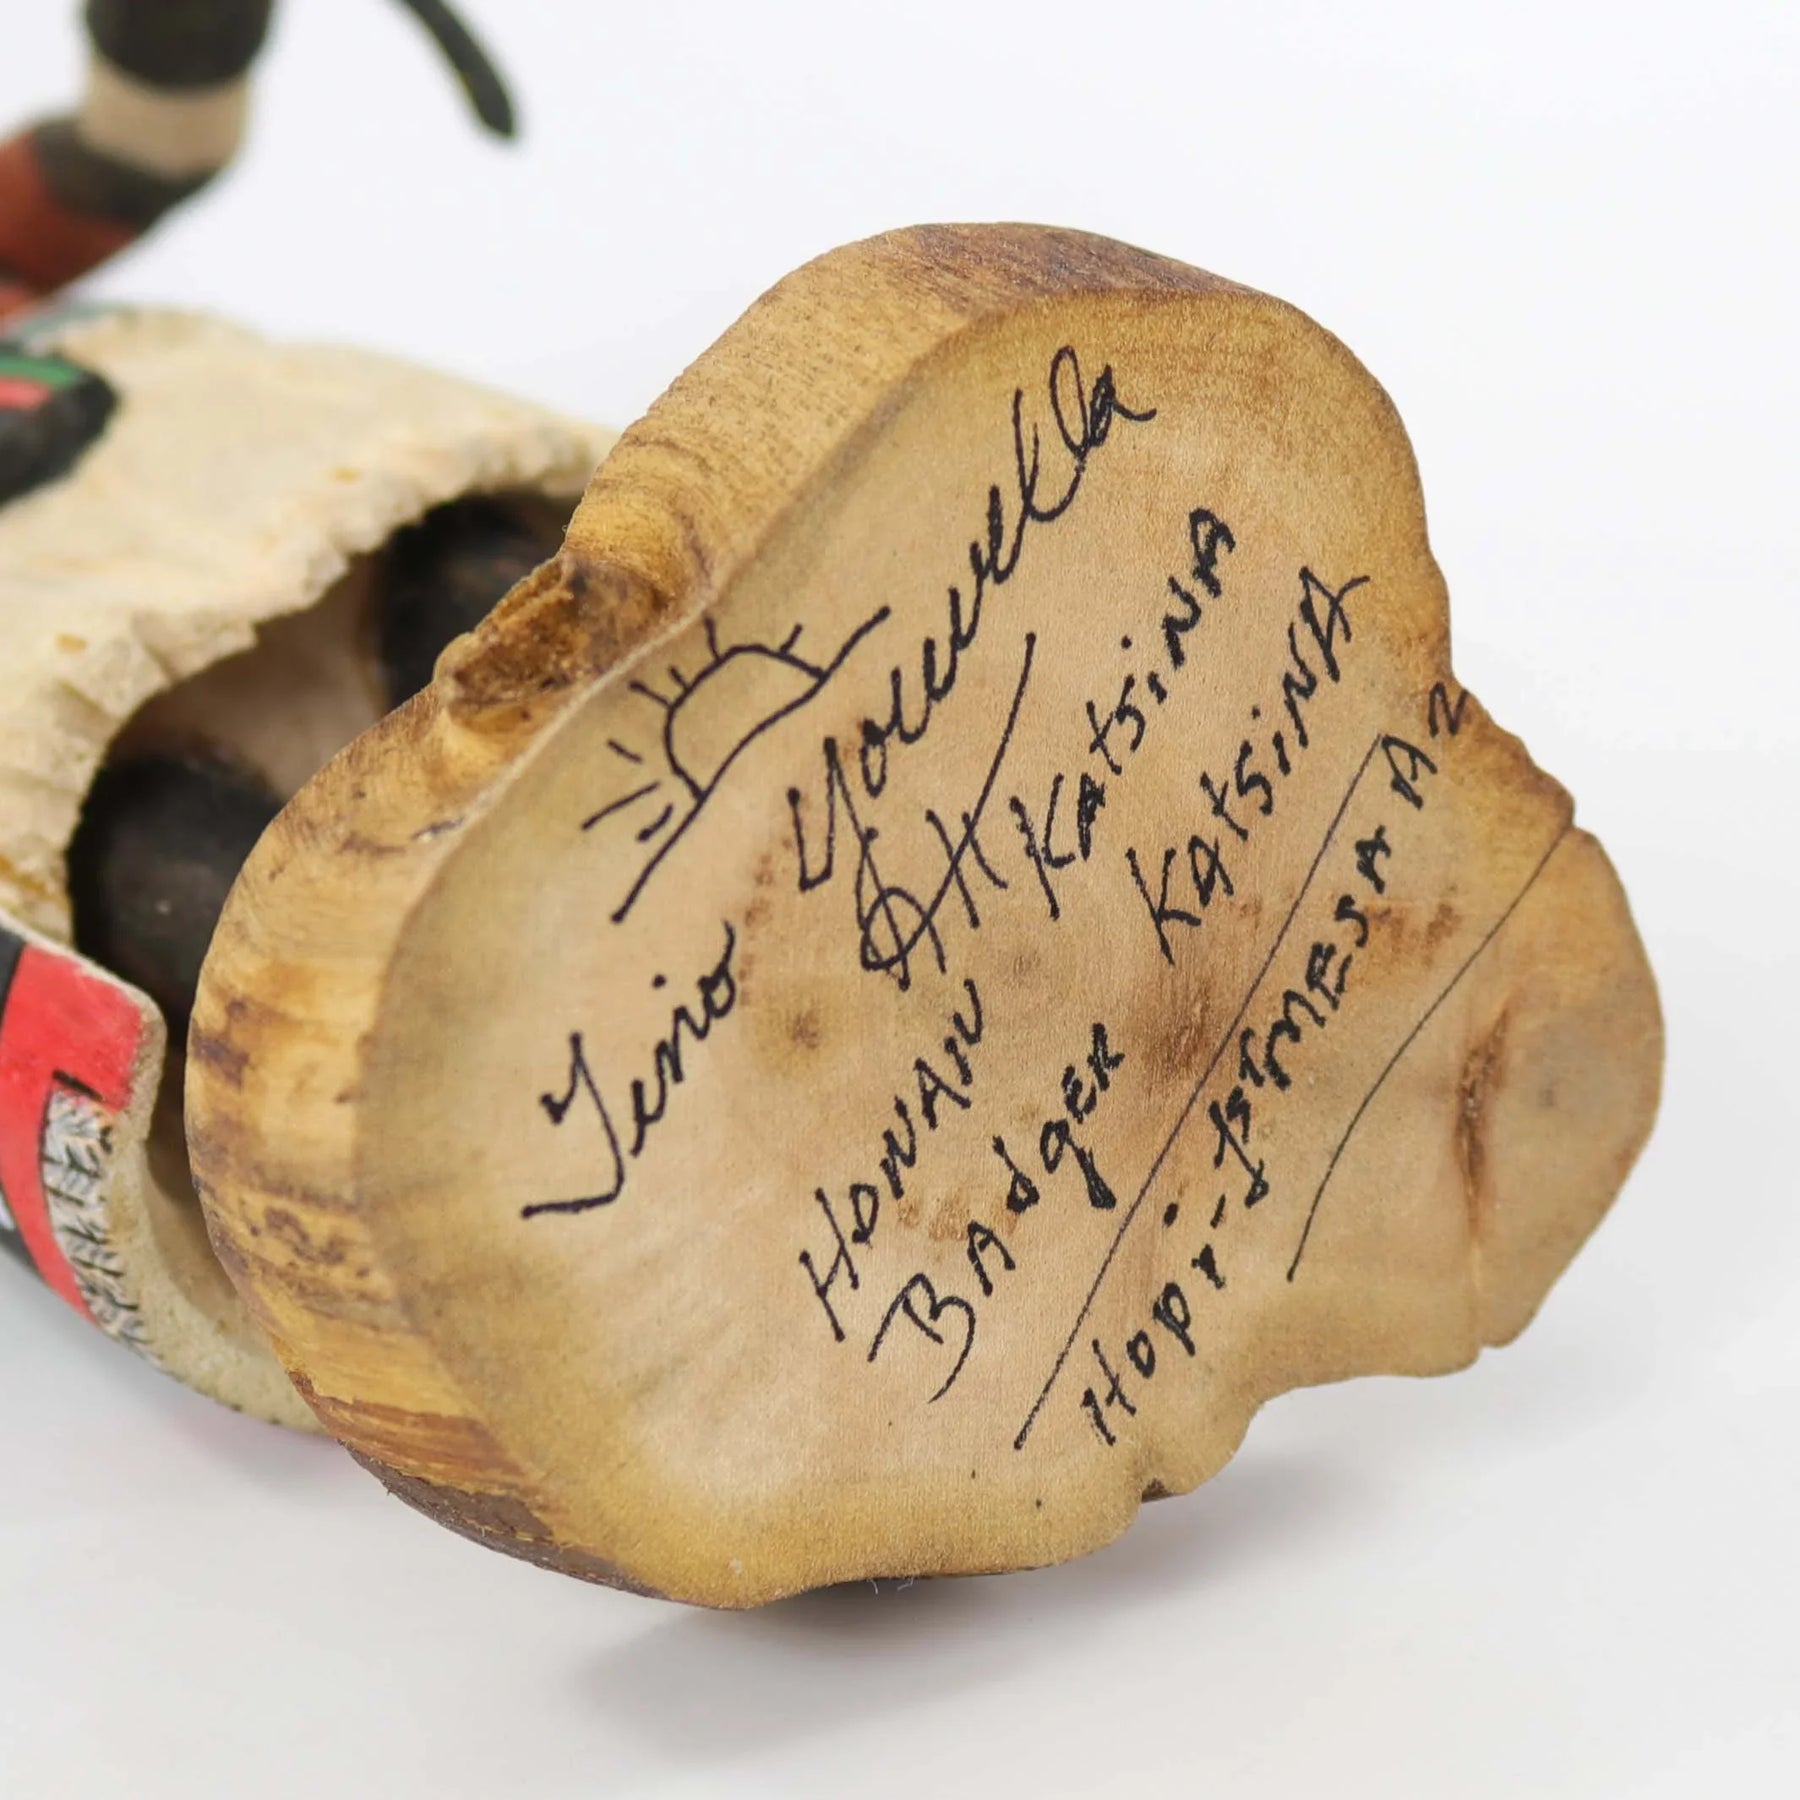 Tino Youvella
HONAN KAtsiNA
BAdgER KAtsiNA
Hopi-1st MESA AZ